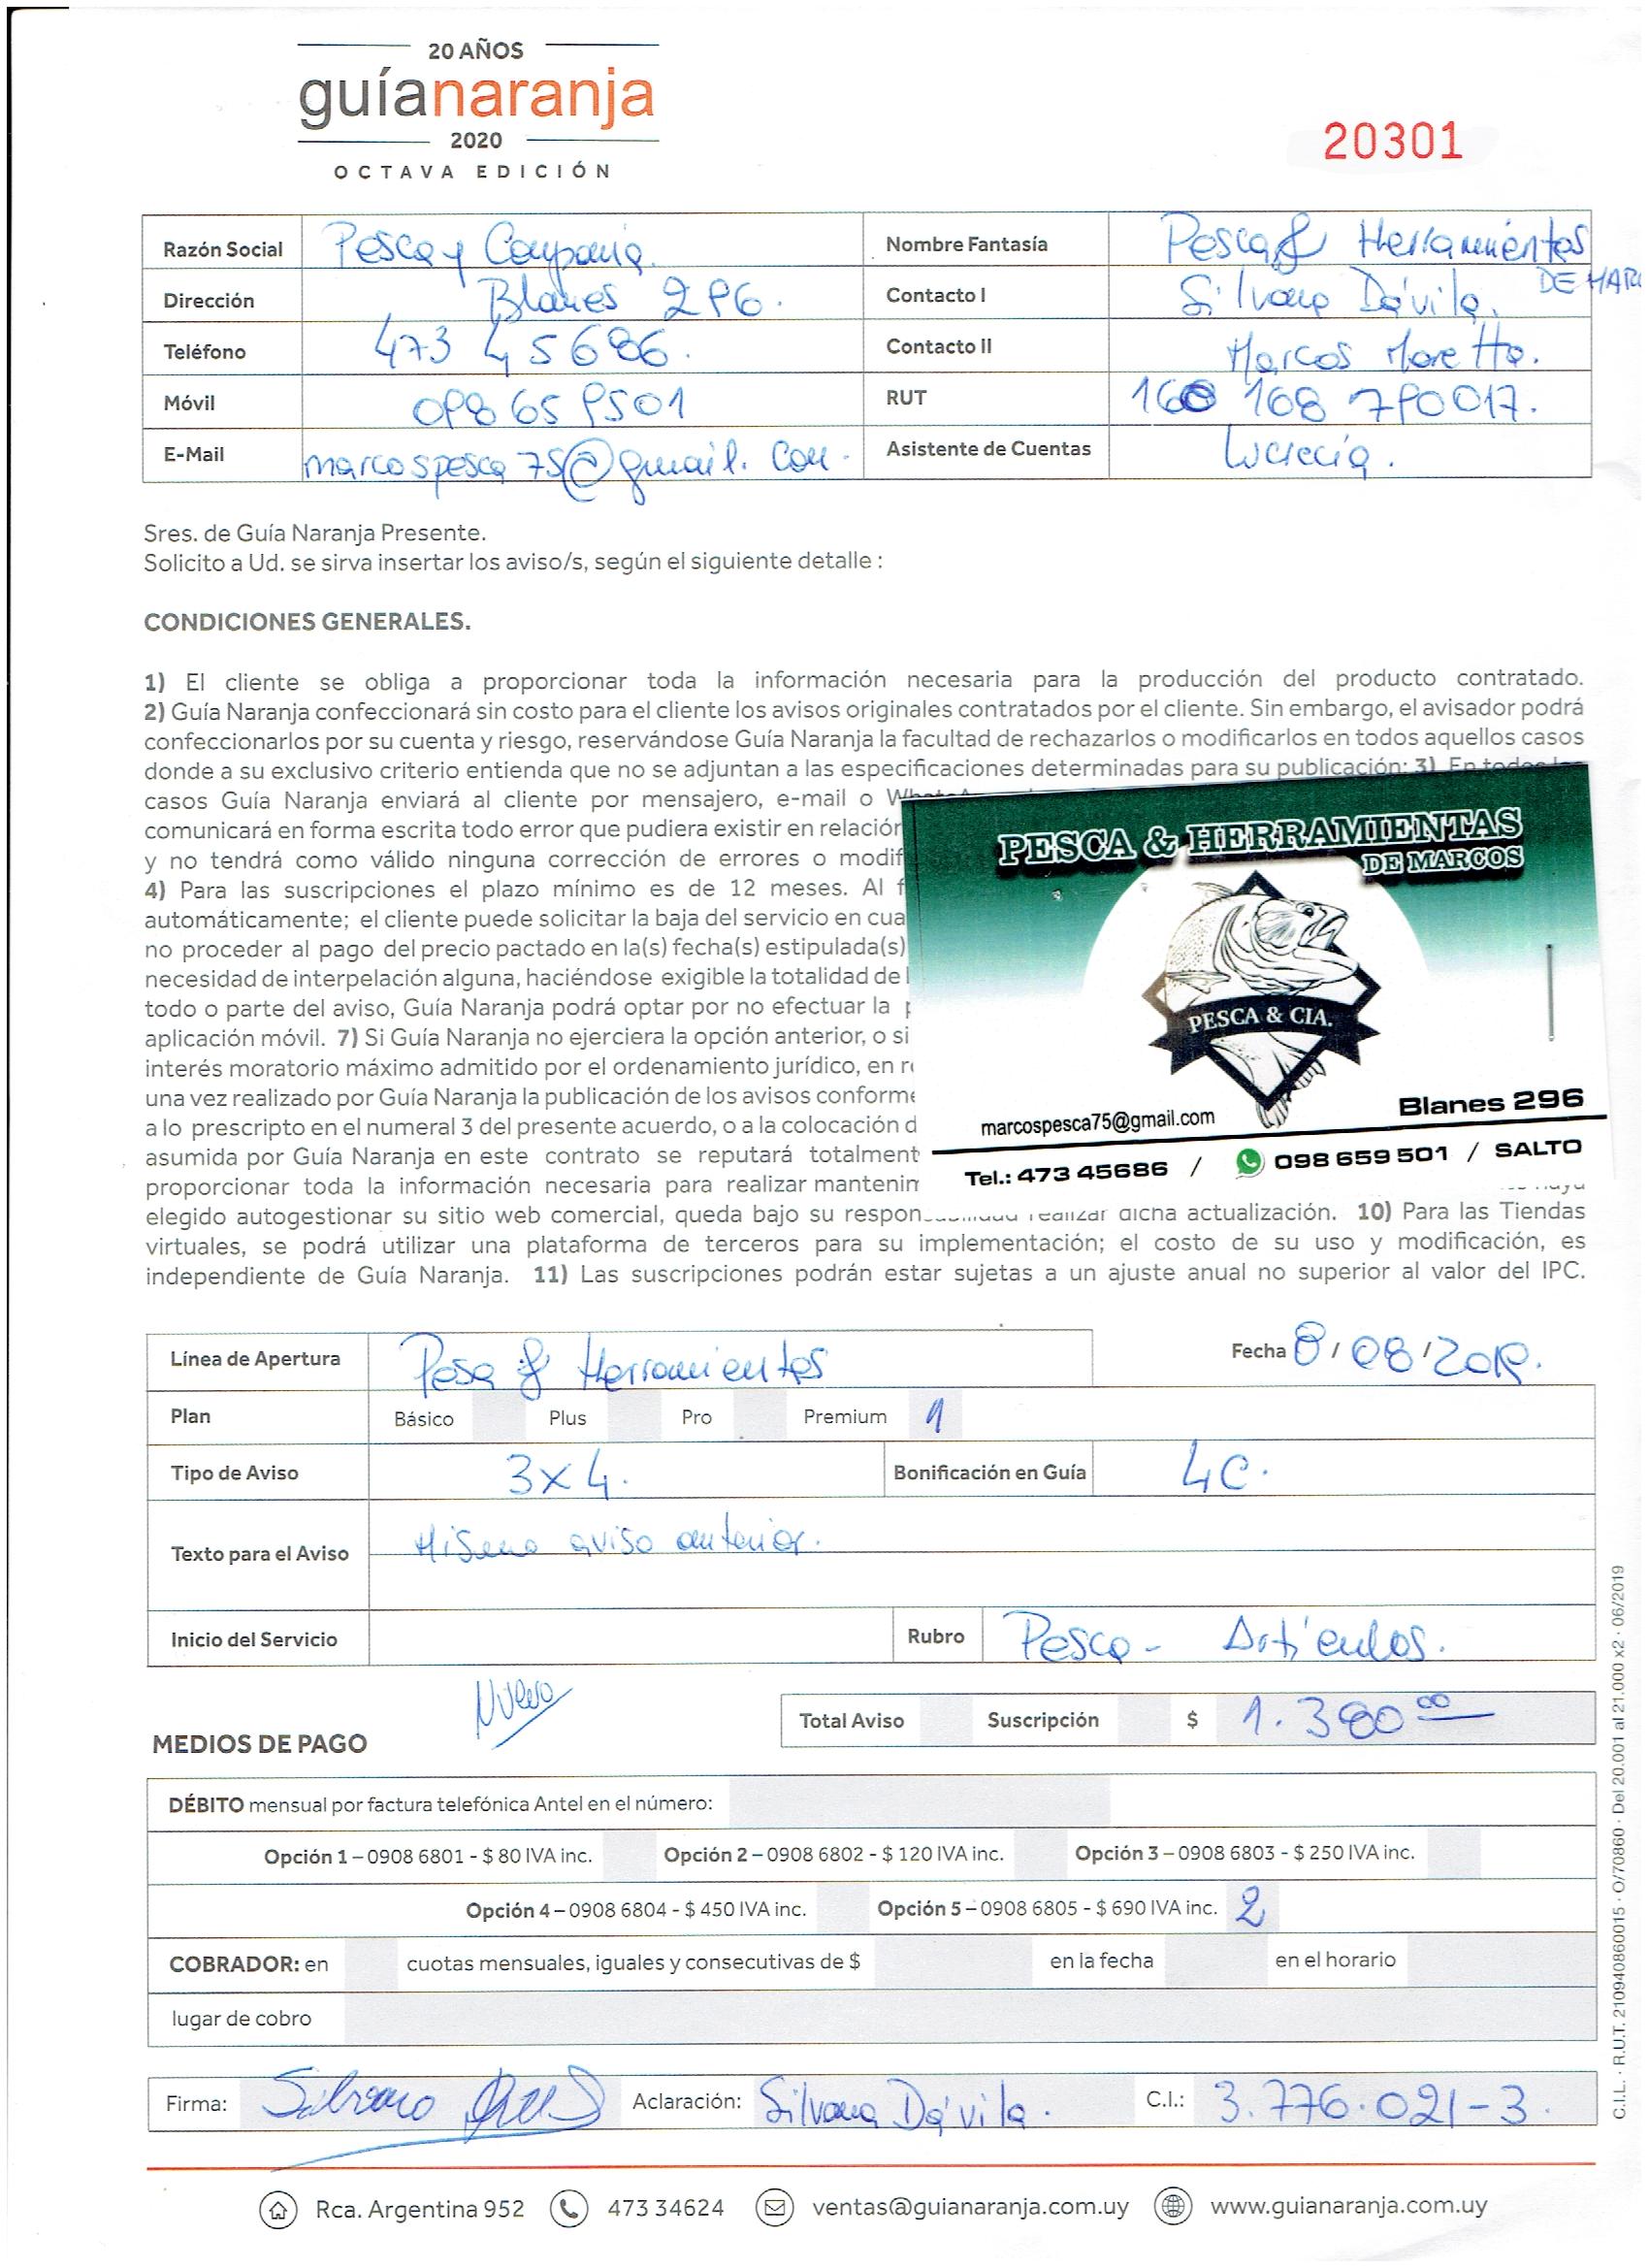 20 AÑOS
guíanaranja
2020
OCTAVA EDICIÓN
20301
Razón Social Pesca y Compañía. Nombre Fantasía Pesca & Herramientas
DE MARC
Dirección Blanes 296. Contacto I Silvana Dávila.
Teléfono 473 45686. Contacto II Marcos Moretto.
Móvil 098 659501 RUT 160 168 790017.
E-Mail marcospesca75@gmail.com. Asistente de Cuentas Lucrecia.
Sres. de Guía Naranja Presente.
Solicito a Ud. se sirva insertar los aviso/s, según el siguiente detalle :
CONDICIONES GENERALES.
1) El cliente se obliga a proporcionar toda la información necesaria para la producción del producto contratado.
2) Guía Naranja confeccionará sin costo para el cliente los avisos originales contratados por el cliente. Sin embargo, el avisador podrá
confeccionarlos por su cuenta y riesgo, reservándose Guía Naranja la facultad de rechazarlos o modificarlos en todos aquellos casos
donde a su exclusivo criterio entienda que no se adjuntan a las especificaciones determinadas para su publicación; 3) En todos los
casos Guía Naranja enviará al cliente por mensajero, e-mail o
comunicará en forma escrita todo error que pudiera existir en relación
y no tendrá como válido ninguna corrección de errores o modif
4) Para las suscripciones el plazo mínimo es de 12 meses. Al f
automáticamente; el cliente puede solicitar la baja del servicio en cua
no proceder al pago del precio pactado en la(s) fecha(s) estipulada(s)
necesidad de interpelación alguna, haciéndose exigible la totalidad de l
todo o parte del aviso, Guía Naranja podrá optar por no efectuar la p
aplicación móvil. 7) Si Guía Naranja no ejerciera la opción anterior, o si
interés moratorio máximo admitido por el ordenamiento jurídico, en r
una vez realizado por Guía Naranja la publicación de los avisos conforme
a lo prescripto en el numeral 3 del presente acuerdo, o a la colocación d
asumida por Guía Naranja en este contrato se reputará totalment
proporcionar toda la información necesaria para realizar mantenim
elegido autogestionar su sitio web comercial, queda bajo su responsabilidad realizar dicha actualización. 10) Para las Tiendas
virtuales, se podrá utilizar una plataforma de terceros para su implementación; el costo de su uso y modificación, es
independiente de Guía Naranja. 11) Las suscripciones podrán estar sujetas a un ajuste anual no superior al valor del IPC.
PESCA & HERRAMIENTAS
DE MARCOS
PESCA & CIA.
marcospesca75@gmail.com
Blanes 296
Tel.: 473 45686 / 098 659 501 / SALTO
Línea de Apertura Pesa & Herramientas Fecha 8 / 08 / 2019.
Plan Básico Plus Pro Premium 1
Tipo de Aviso 3x4. Bonificación en Guía 4C.
Texto para el Aviso Mismo aviso anterior.
Inicio del Servicio Rubro Pesca - Artículos.
Nuevo
Total Aviso Suscripción $ 1.380 00
MEDIOS DE PAGO
DÉBITO mensual por factura telefónica Antel en el número:
Opción 1 – 0908 6801 - $ 80 IVA inc. Opción 2 – 0908 6802 - $ 120 IVA inc. Opción 3 – 0908 6803 - $ 250 IVA inc.
Opción 4 – 0908 6804 - $ 450 IVA inc. Opción 5 – 0908 6805 - $ 690 IVA inc. 2
COBRADOR: en cuotas mensuales, iguales y consecutivas de $ en la fecha en el horario
lugar de cobro
Firma: Silvana Aclaración: Silvana Dávila. C.I.: 3.776.021-3.
Rca. Argentina 952 473 34624 ventas@guianaranja.com.uy www.guianaranja.com.uy
C.I.L. · R.U.T. 210940860015 · O/70860 · Del 20.001 al 21.000 x2 · 06/2019